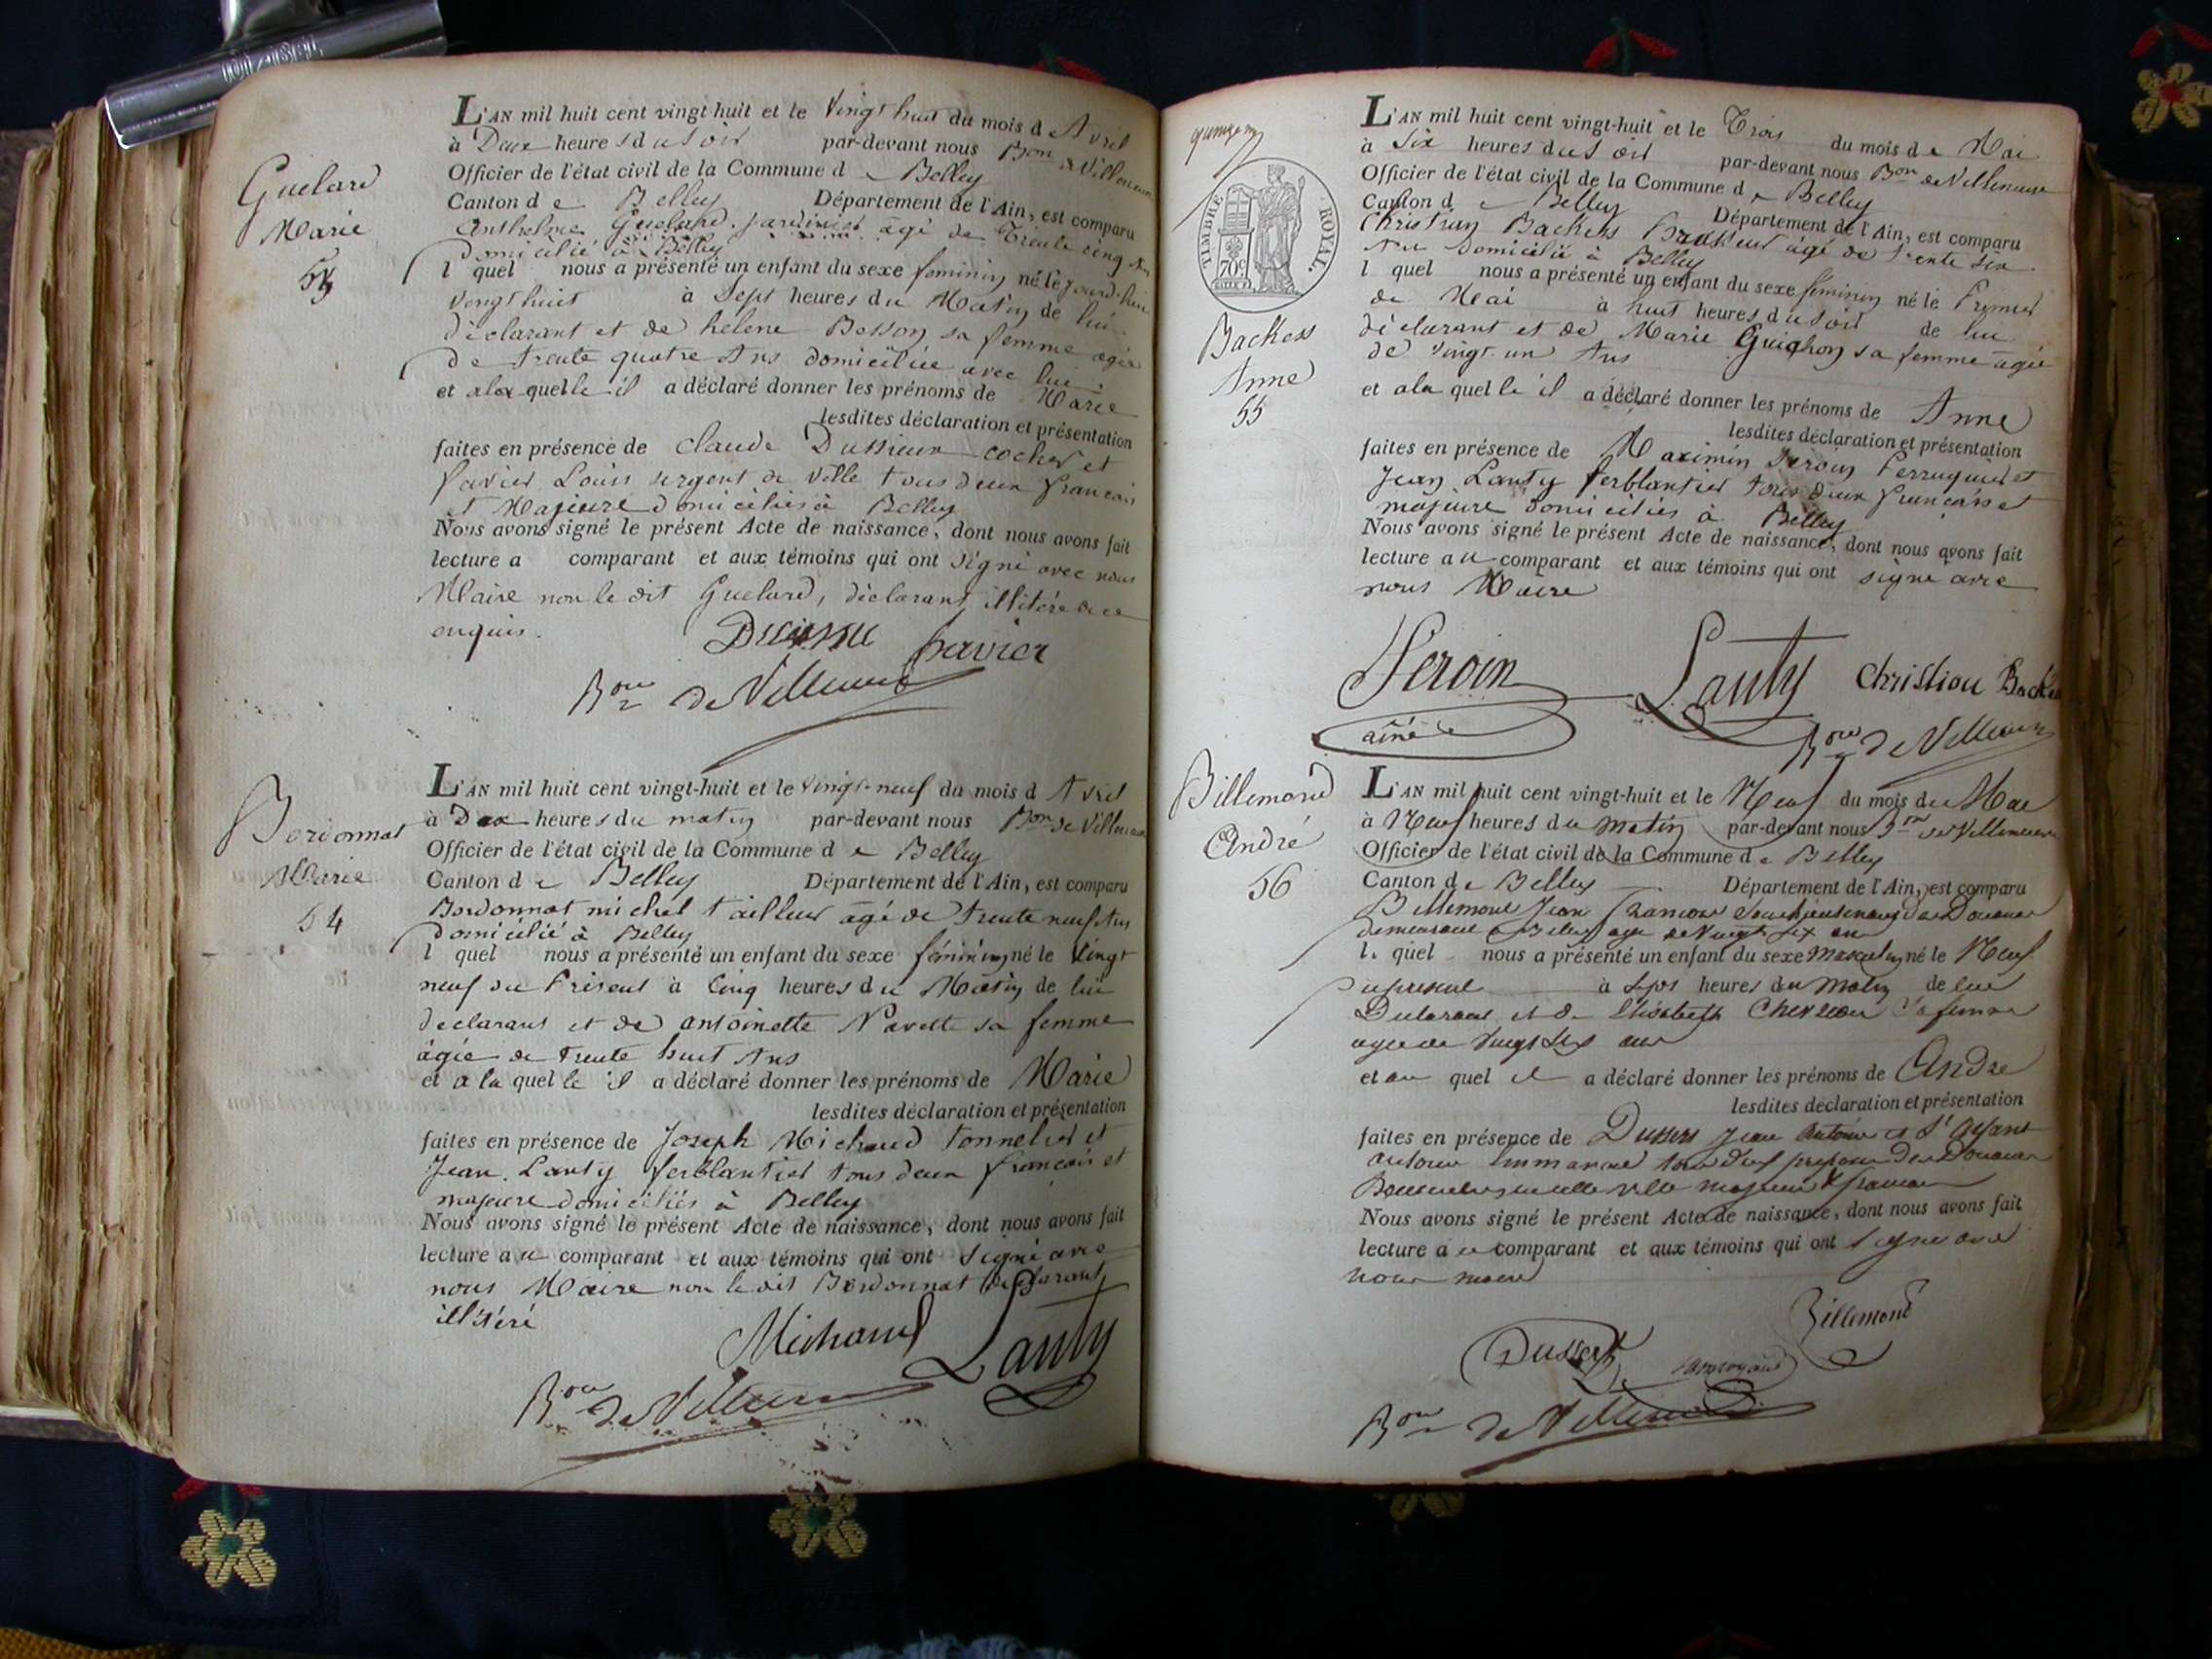 Guelard
Marie
53
L'AN mil huit cent vingt-huit et le Vingt huit du mois d'Avril
à Deux heures du Soir par-devant nous Bon de Villeneuve
Officier de l'état civil de la Commune de Belley
Canton de Belley Département de l'Ain, est comparu
Anthelme Guelard jardinier agé de Trente cinq Ans
domicilié à Belley
lequel nous a présenté un enfant du sexe feminin né le jourd'hui
Vingt huit à Sept heures du Matin de lui
déclarant et de helene Besson sa femme agée
de trente quatre Ans domiciliée avec lui.
et a la quelle il a déclaré donner les prénoms de Marie
lesdites déclaration et présentation
faites en présence de Claude Dussieux cocher et
Louis sergent de Ville tous deux français
et Majeure domiciliés à Belley
Nous avons signé le présent Acte de naissance, dont nous avons fait
lecture a comparant et aux témoins qui ont signé avec nous
Maire non le dit Guelard, déclarant illitéré de ce
enquis.
Bon de Villeneuve
Bordonnat
Marie
54
L'AN mil huit cent vingt-huit et le Vingt-neuf du mois d Avril
à heures du matin par-devant nous Bon de Villeneuve
Officier de l'état civil de la Commune de Belley
Canton de Belley Département de l'Ain, est comparu
Bordonnat michel tailleur âgé de trente neuf Ans
domicilié à Belley
l quel nous a présenté un enfant du sexe féminin né le Vingt
neuf du Présent à Cinq heures du Matin de lui
declarant et de antoinette Navette sa femme
âgée de trente huit Ans
et a la quelle il a déclaré donner les prénoms de Marie
lesdites déclaration et présentation
faites en présence de Joseph Michaud tonnelier et
Jean Lanty ferblantier tous deux français et
majeure domiciliés à Belley
Nous avons signé le présent Acte de naissance, dont nous avons fait
lecture au comparant et aux témoins qui ont signé avec
nous Maire non le dit Bordonnat déclarant
illitéré
Michaud Lanty
Bon de Villeneuve
TIMBRE ROYAL.
70c
Backess
Anne
55
L'AN mil huit cent vingt-huit et le Trois du mois de Mai
à Six heures du Soir par-devant nous Bon de Villeneuve
Officier de l'état civil de la Commune de Belley
Canton de Belley Département de l'Ain, est comparu
Christian Backess Brasseur âgé de trente six
Ans domicilié à Belley
l quel nous a présenté un enfant du sexe féminin né le Premier
de Mai à huit heures du Soir de lui
déclarant et de Marie Guighon sa femme agée
de vingt-un Ans
et a la quelle il a déclaré donner les prénoms de Anne
lesdites déclaration et présentation
faites en présence de Maximin Peroin Perruquier et
Jean Lanty ferblantier tous deux français et
majeure domiciliés à Belley
Nous avons signé le présent Acte de naissance, dont nous avons fait
lecture au comparant et aux témoins qui ont signé avec
nous Maire
Peroin Lanty Christian Backess
ainé
Bon de Villeneuve
Billemond
André
56
L'AN mil huit cent vingt-huit et le Neuf du mois de Mai
à Neuf heures du Matin par-devant nous Bon de Villeneuve
Officier de l'état civil de la Commune de Belley
Canton de Belley Département de l'Ain, est comparu
Billemond Jean François Sous Lieutenant des Douanes
demeurant à Belley age de Vingt Six ans
le quel nous a présenté un enfant du sexe Masculin né le Neuf
du présent à Sept heures du Matin de lui
Declarant et de Elisabeth sa femme
agée de Vingt Six ans
et au quel il a déclaré donner les prénoms de André
lesdites déclaration et présentation
faites en présence de Dussert Jean Antoine et
tous deux préposés des Douanes
majeurs & francais
Nous avons signé le présent Acte de naissance, dont nous avons fait
lecture a ce comparant et aux témoins qui ont signé avec
nous maire
Billemond
Dussert
Bon de Villeneuve